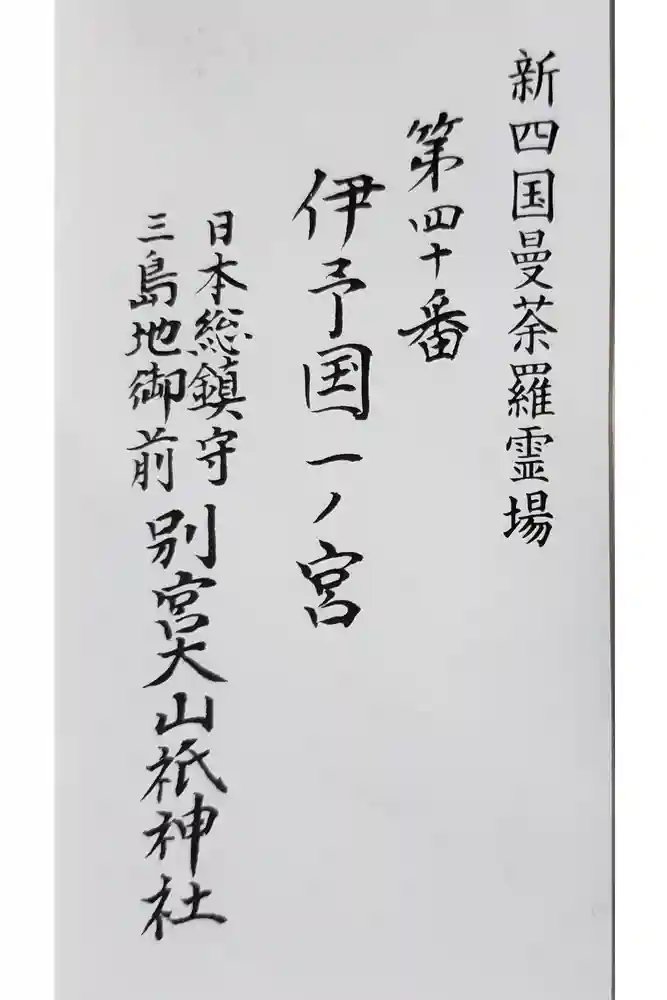 新四国曼荼羅霊場
第四十番
伊予国一ノ宮
日本総鎮守
三島地御前
別宮大山祇神社